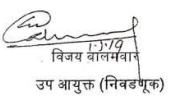 1.3.19
विजय वालमवार
उप आयुक्त (निवडणूक)